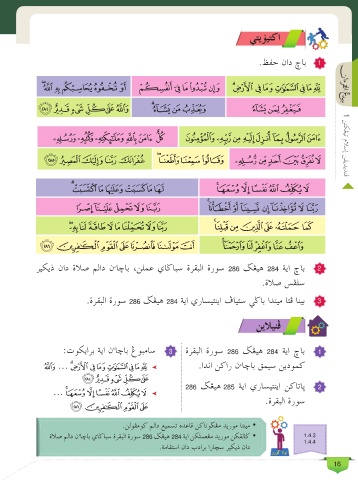 اکتيۏيتي
1 باچ دان حفظ.
لِّلَّهِ مَا فِى ٱلسَّمَـٰوَٰتِ وَمَا فِى ٱلْأَرْضِ ۗ وَإِن تُبْدُوا۟ مَا فِىٓ أَنفُسِكُمْ أَوْ تُخْفُوهُ يُحَاسِبْكُم بِهِ ٱللَّهُ ۖ
فَيَغْفِرُ لِمَن يَشَآءُ وَيُعَذِّبُ مَن يَشَآءُ ۗ وَٱللَّهُ عَلَىٰ كُلِّ شَىْءٍ قَدِيرٌ ﴿٢٨٤﴾
ءَامَنَ ٱلرَّسُولُ بِمَآ أُنزِلَ إِلَيْهِ مِن رَّبِّهِۦ وَٱلْمُؤْمِنُونَ ۚ كُلٌّ ءَامَنَ بِٱللَّهِ وَمَلَـٰٓئِكَتِهِۦ وَكُتُبِهِۦ وَرُسُلِهِۦ
لَا نُفَرِّقُ بَيْنَ أَحَدٍ مِّن رُّسُلِهِۦ ۚ وَقَالُوا۟ سَمِعْنَا وَأَطَعْنَا ۖ غُفْرَانَكَ رَبَّنَا وَإِلَيْكَ ٱلْمَصِيرُ ﴿٢٨٥﴾
لَا يُكَلِّفُ ٱللَّهُ نَفْسًا إِلَّا وُسْعَهَا ۚ لَهَا مَا كَسَبَتْ وَعَلَيْهَا مَا ٱكْتَسَبَتْ ۗ
رَبَّنَا لَا تُؤَاخِذْنَآ إِن نَّسِينَآ أَوْ أَخْطَأْنَا ۚ رَبَّنَا وَلَا تَحْمِلْ عَلَيْنَآ إِصْرًا
كَمَا حَمَلْتَهُۥ عَلَى ٱلَّذِينَ مِن قَبْلِنَا ۚ رَبَّنَا وَلَا تُحَمِّلْنَا مَا لَا طَاقَةَ لَنَا بِهِۦ ۖ
وَٱعْفُ عَنَّا وَٱغْفِرْ لَنَا وَٱرْحَمْنَآ ۚ أَنتَ مَوْلَىٰنَا فَٱنصُرْنَا عَلَى ٱلْقَوْمِ ٱلْكَـٰفِرِينَ ﴿٢٨٦﴾
2 باچ اية 284 هيڠݢ 286 سورة البقرة سباݢاي عملن، باچاءن دالم صلاة دان ذکير
سلڤس صلاة.
3 بينا اڤتا ميندا باݢي ستياف اينتيساري اية 284 هيڠݢ 286 سورة البقرة.
1 باچ اية 284 هيڠݢ 286 سورة البقرة
کمودين سيمق باچاءن راکن اندا.
2 ڽاتاکن اينتيساري اية 285 هيڠݢ 286
سورة البقرة.
3 سامبوڠ باچاءن اية برايکوت:
لِّلَّهِ مَا فِى ٱلسَّمَـٰوَٰتِ وَمَا فِى ٱلْأَرْضِ ... وَٱللَّهُ
عَلَىٰ كُلِّ شَىْءٍ قَدِيرٌ ﴿٢٨٤﴾
لَا يُكَلِّفُ ٱللَّهُ نَفْسًا إِلَّا وُسْعَهَا ...
عَلَى ٱلْقَوْمِ ٱلْكَـٰفِرِينَ ﴿٢٨٦﴾
1.4.2
1.4.4
16